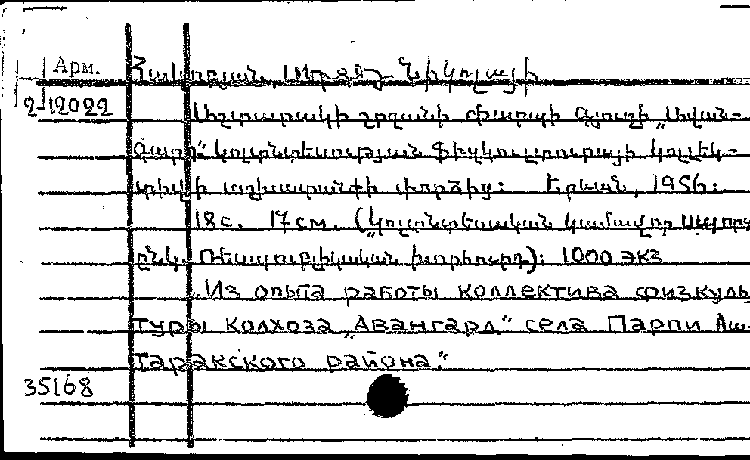 Арм.
2-12022
Նիկոլայի
Աշտարակի շրջանի Փարպի գյուղի „Ավան-
գարդ“ կոլտնտեսության ֆիզկուլտուրայի կոլեկ-
տիվի աշխատանքի փորձից: Երևան, 1956:
18с. 17см. (կոլտնտեսական կամավոր սպորտ
ընկ. Ռեսպուբլիկական խորհուրդ): 1000 экз
.Из опыта работы коллектива физкуль
туры колхоза „Авангард“ села Парпи Аш
таракского района."
35168